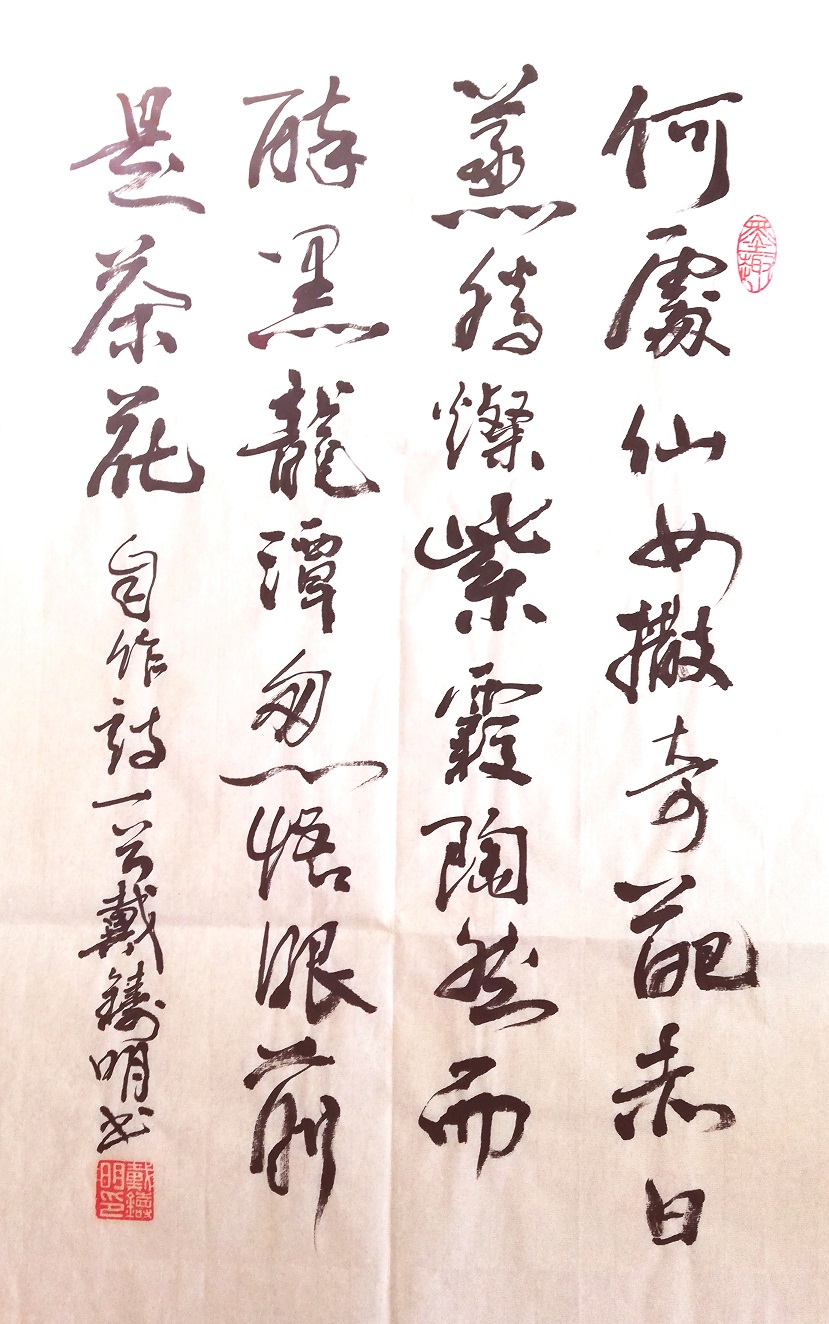 何處仙女撒奇葩赤日
墨趣
蒸騰燦紫霞陶然而
醉黑龍潭忽悟眼前
是茶花 自作詩一首戴鑄明書
戴鑄明印